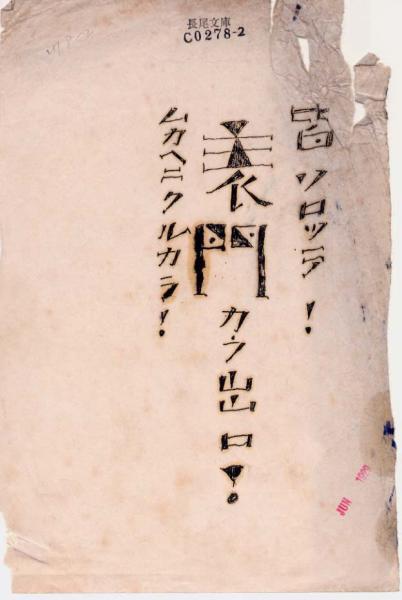 長尾文庫
C0278-2
皆ソロッテ!
表門カラ出ロ!
ムカヘニクルカラ!
JUN